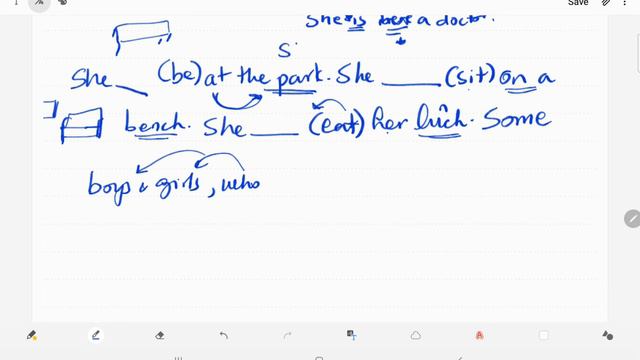 Save
She is a doctor.
S
She __ (be) at the park. She ____ (sit) on a
bench. She ____ (eat) her luch. Some
boys & girls, who